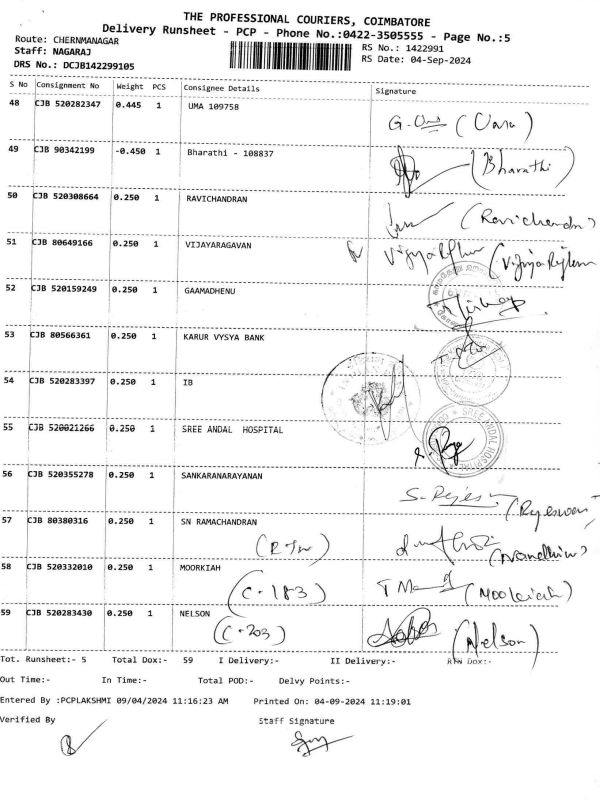 THE PROFESSIONAL COURIERS, COIMBATORE
Delivery Runsheet - PCP - Phone No.:0422-3505555 - Page No.:5
Route: CHERNMANAGAR RS No.: 1422991
Staff: NAGARAJ RS Date: 04-Sep-2024
DRS No.: DCJB142299105
S No Consignment No Weight PCS Consignee Details Signature
48 CJB 520282347 0.445 1 UMA 109758
G. Uma (Uma)
49 CJB 90342199 -0.450 1 Bharathi - 108837
(Bharathi)
50 CJB 520308664 0.250 1 RAVICHANDRAN
(Ravichandran)
51 CJB 80649166 0.250 1 VIJAYARAGAVAN
52 CJB 520159249 0.250 1 GAAMADHENU
53 CJB 80566361 0.250 1 KARUR VYSYA BANK
54 CJB 520283397 0.250 1 IB
55 CJB 520021266 0.250 1 SREE ANDAL HOSPITAL
SREE ANDAL HOSPITAL
56 CJB 520355278 0.250 1 SANKARANARAYANAN
57 CJB 80380316 0.250 1 SN RAMACHANDRAN
58 CJB 520332010 0.250 1 MOORKIAH
(C-183)
59 CJB 520283430 0.250 1 NELSON
(C-203) (Nelson)
Tot. Runsheet:- 5 Total Dox:- 59 I Delivery:- II Delivery:- RTN Dox:-
Out Time:- In Time:- Total POD:- Delvy Points:-
Entered By :PCPLAKSHMI 09/04/2024 11:16:23 AM Printed On: 04-09-2024 11:19:01
Verified By Staff Signature